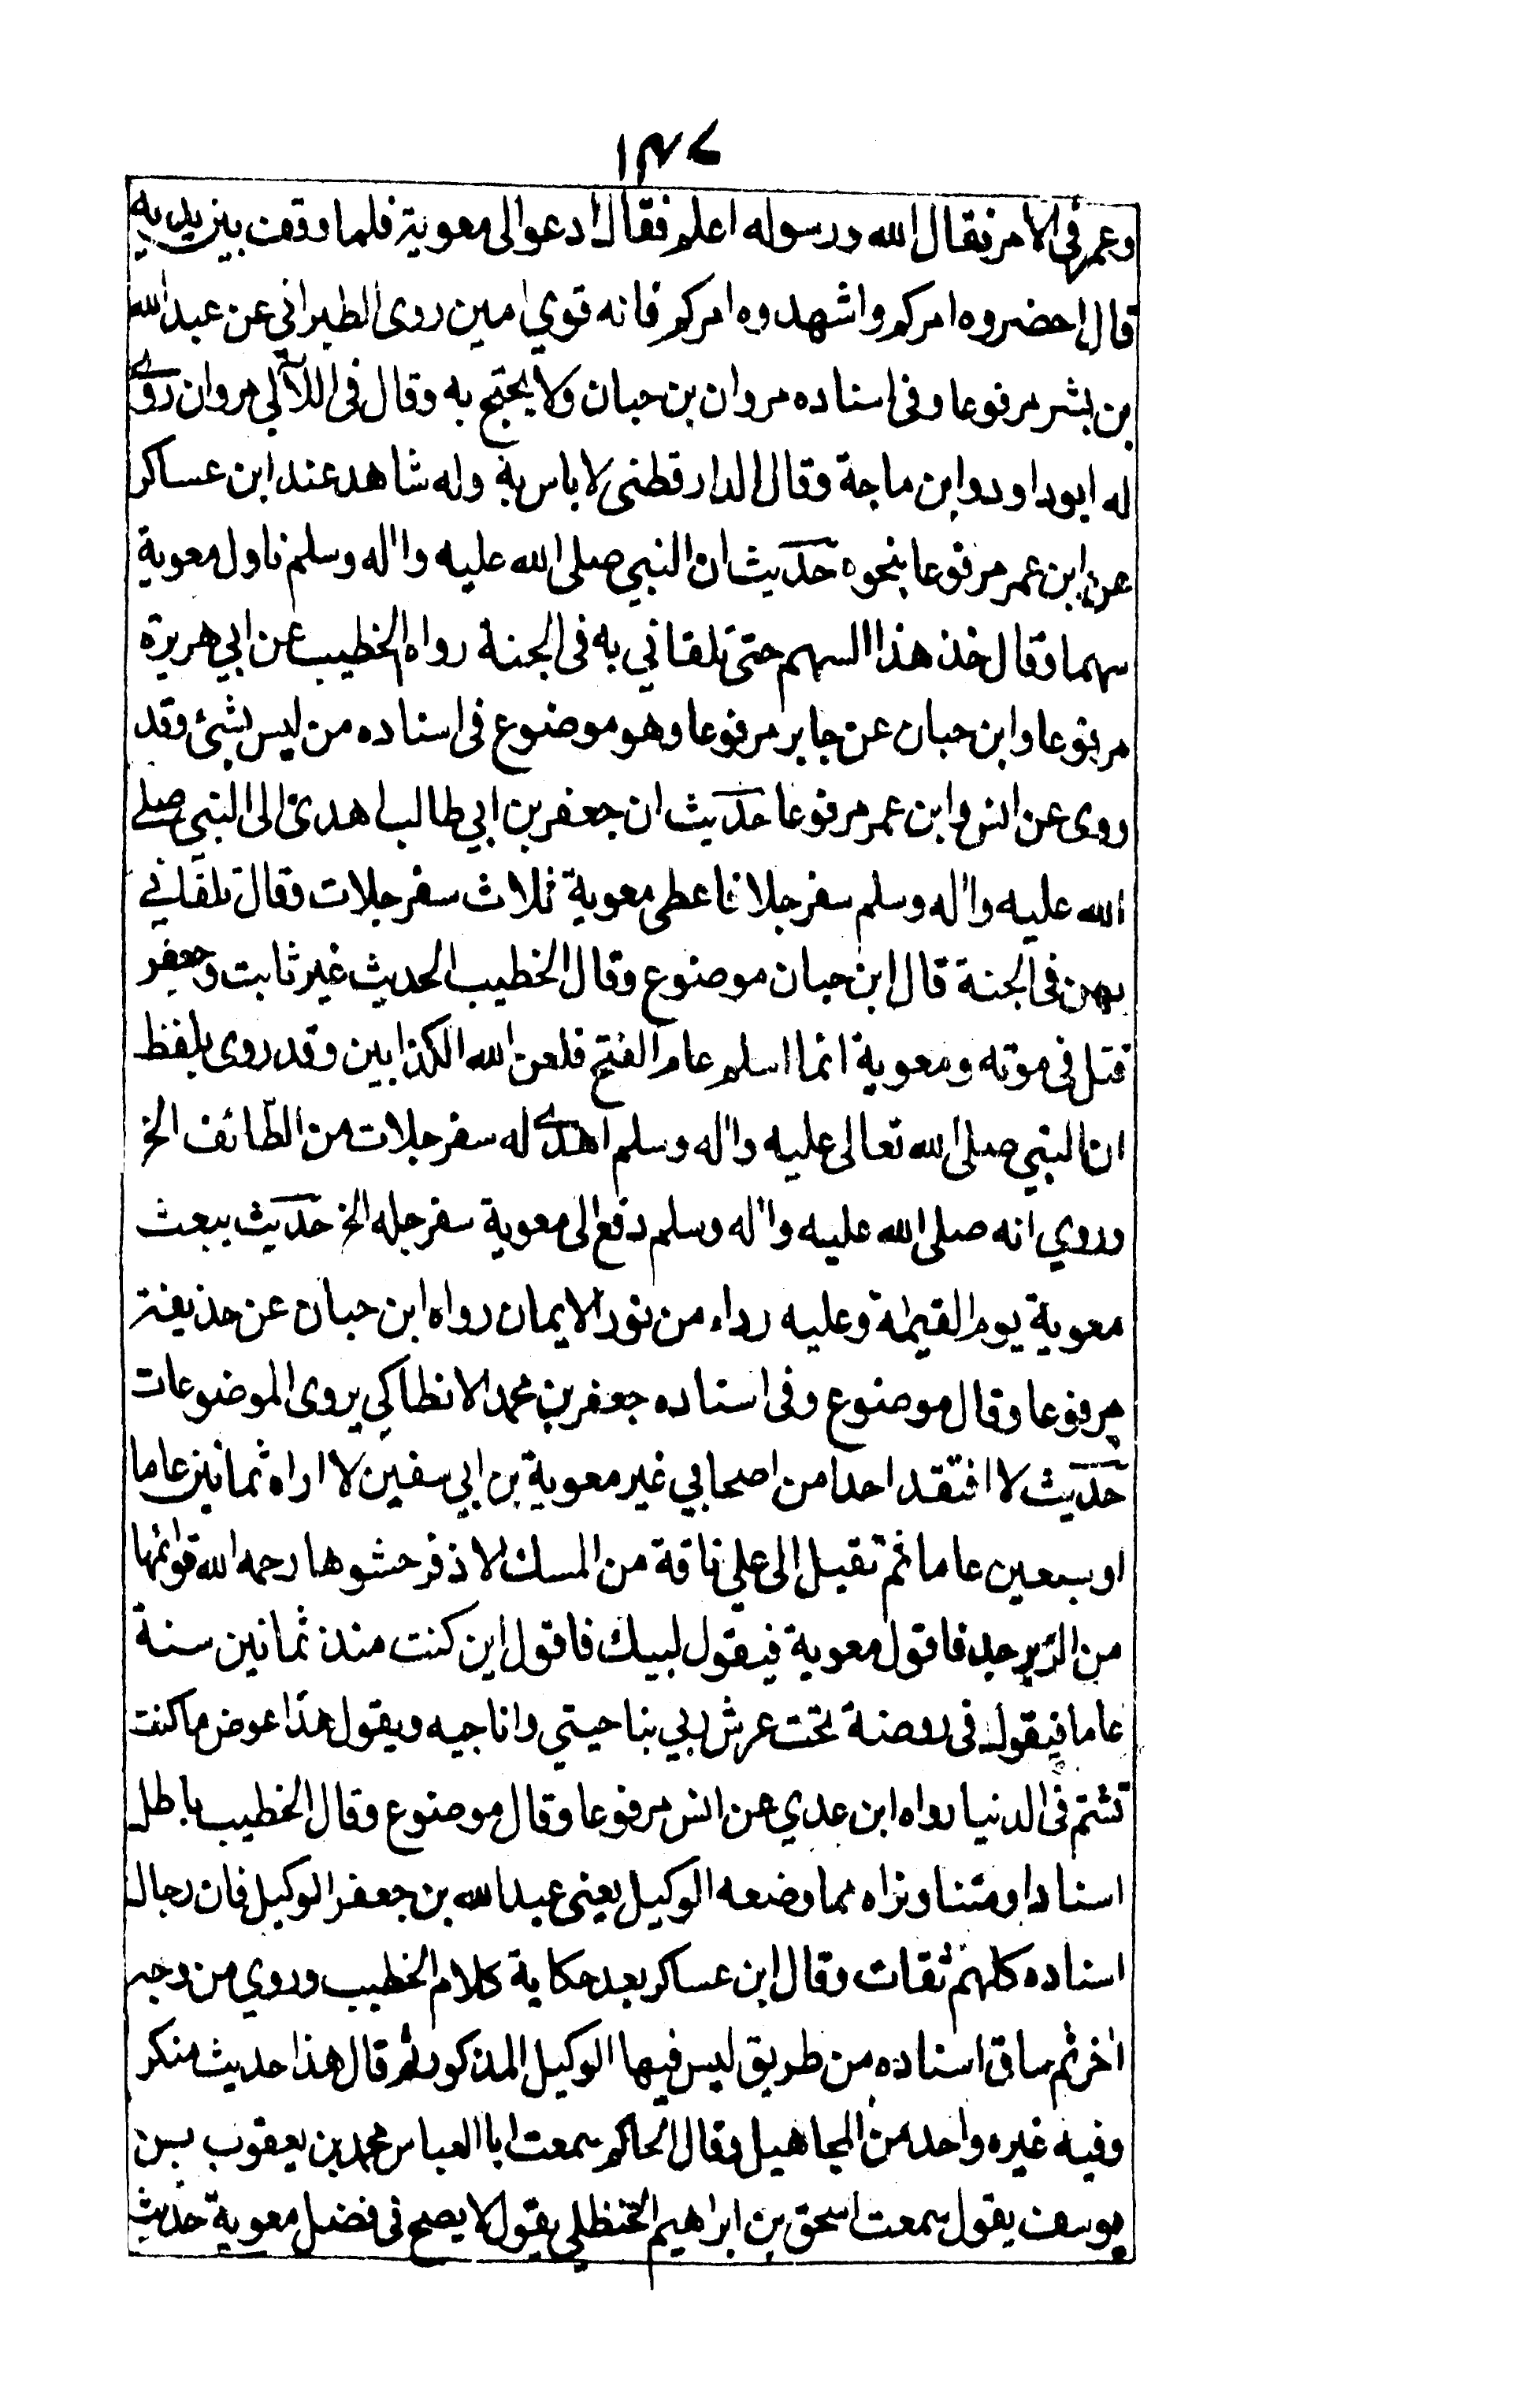 ١٣٧
وعمر في الامر فقال الله ورسوله اعلم فقال ادعوا لى معوية فلما وقف بين يديه
قال احضروه امركم واشهدوه امركم فانه قوي امين روى الطبرانى عن عبد الله
بن بشر مرفوعا وفى اسناده مروان بن حبان ولا يحتج به وقال فى اللآلي مروان روى
له ابوداود وابن ماجة وقال الدارقطنى لا باس به وله شاهد عند ابن عساكر
عن ابن عمر مرفوعا بنحوه حديث ان النبي صلى الله عليه واٰله وسلم ناول معوية
سهما وقال خذ هذا السهم حتى تلقاني به فى الجنة رواه الخطيب عن ابي هريرة
مرفوعا وابن حبان عن جابر مرفوعا وهو موضوع فى اسناده من ليس بشئ وقد
روى عن انس وابن عمر مرفوعا حديث ان جعفر بن ابي طالب اهدى الى النبي صلى
الله عليه واٰله وسلم سفرجلا فاعطى معوية ثلاث سفرجلات وقال تلقاني
بهن فى الجنة قال ابن حبان موضوع وقال الخطيب الحديث غير ثابت وجعفر
قتل فى موته ومعوية انما اسلم عام الفتح فلعن الله الكذابين وقد روى بلفظ
ان النبي صلى الله تعالى عليه واٰله وسلم اهدى له سفرجلات من الطائف الخ
وروي انه صلى الله عليه واٰله وسلم دفع الى معوية سفرجله الخ حديث يبعث
معوية يوم القيمة وعليه رداء من نور الايمان رواه ابن حبان عن حذيفة
مرفوعا وقال موضوع وفى اسناده جعفر بن محمد الانطاكي يروى الموضوعات
حديث لا افتقد احدا من اصحابي غير معوية بن ابي سفين لا اراه ثمانين عاما
او سبعين عاما ثم تقبل الى علي ناقة من المسك الاذفر حشوها رحمه الله قوائمها
من الزبرجد فاقول معوية فيقول لبيك فاقول اين كنت منذ ثمانين سنة
عاما فيقول فى روضة تحت عرش ربي يناجيني واناجيه ويقول هذا عوض ما كنت
تشتم فى الدنيا رواه ابن عدي عن انس مرفوعا وقال موضوع وقال الخطيب باطل
اسنادا ومتنا ونراه مما وضعه الوكيل يعنى عبد الله بن جعفر الوكيل فان رجال
اسناده كلهم ثقات وقال ابن عساكر بعد حكاية كلام الخطيب وروي من وجه
اٰخر ثم ساق اسناده من طريق ليس فيها الوكيل المذكور ثم قال هذا حديث منكر
وفيه غيره واحد من المجاهيل وقال الحاكم سمعت ابا العباس محمد بن يعقوب بن
يوسف يقول سمعت اسحق بن ابراهيم الحنظلي يقول لا يصح فى فضل معوية حديث